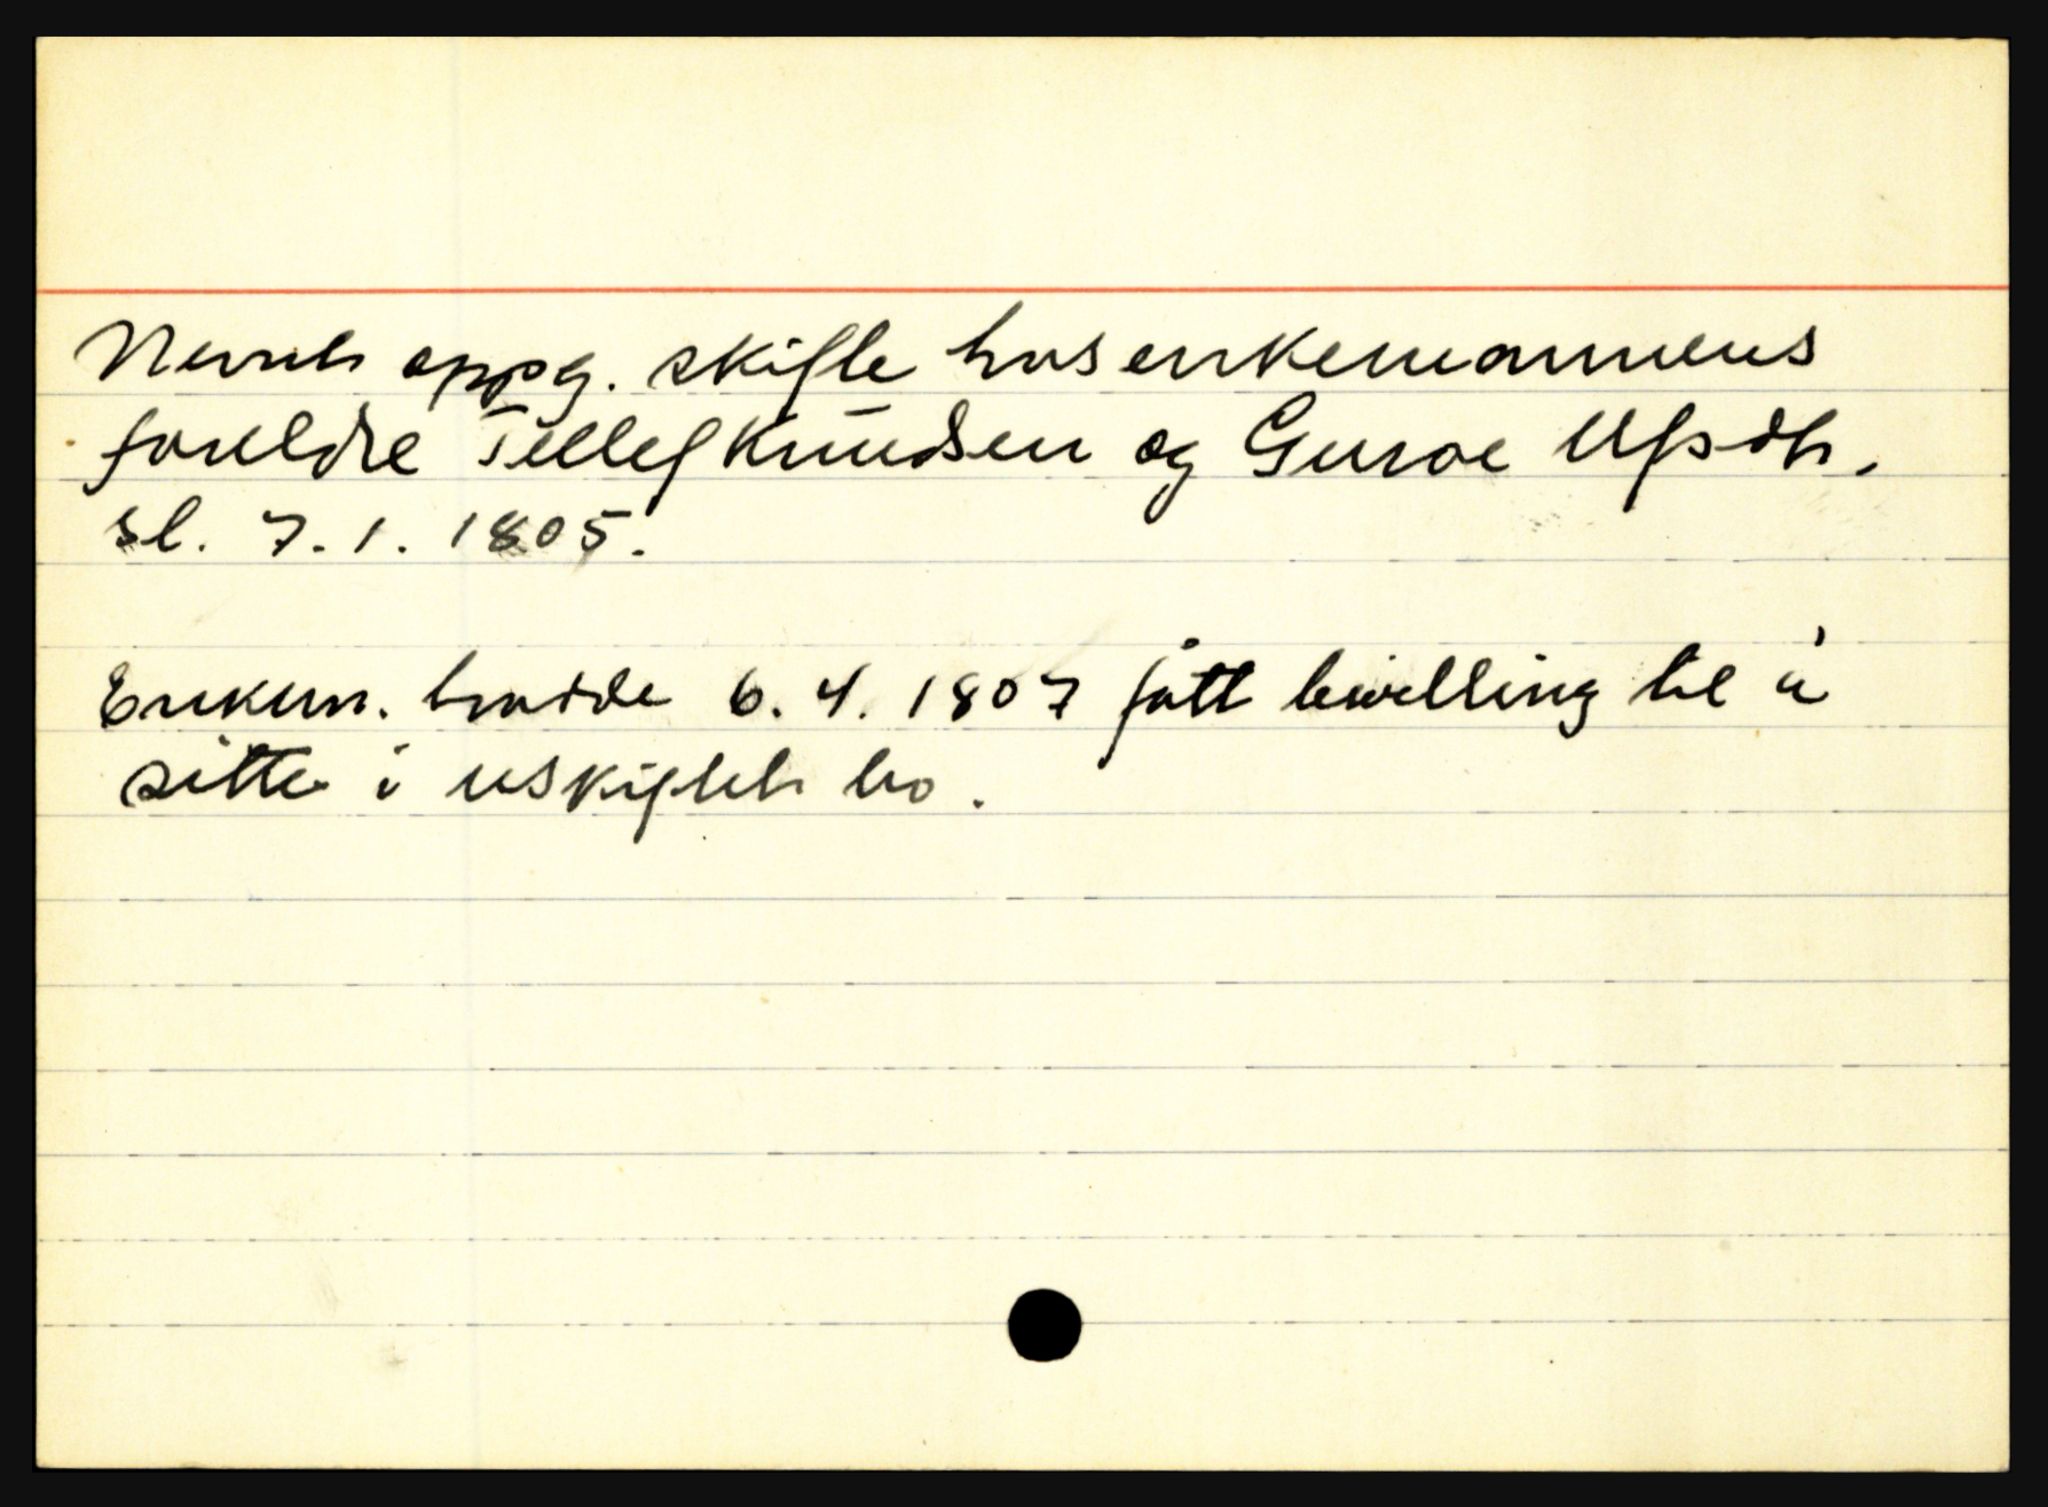 Nevnt oppg. skifte hos enkemannens
foreldre Tellef Knudsen og Guroe Ulfsdtr.
sl. 7.1.1805.
Enkem. hadde 6.4.1807 fått bevilling til å
sitte i uskiftet bo.